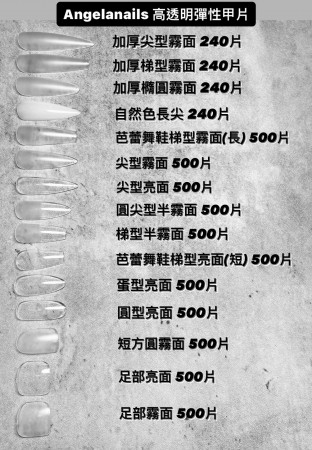 Angelanails 高透明彈性甲片
加厚尖型霧面 240片
加厚梯型霧面 240片
加厚橢圓霧面 240片
自然色長尖 240片
芭蕾舞鞋梯型霧面(長) 500片
尖型霧面 500片
尖型亮面 500片
圓尖型半霧面 500片
梯型半霧面 500片
芭蕾舞鞋梯型亮面(短) 500片
蛋型亮面 500片
圓型亮面 500片
短方圓霧面 500片
足部亮面 500片
足部霧面 500片